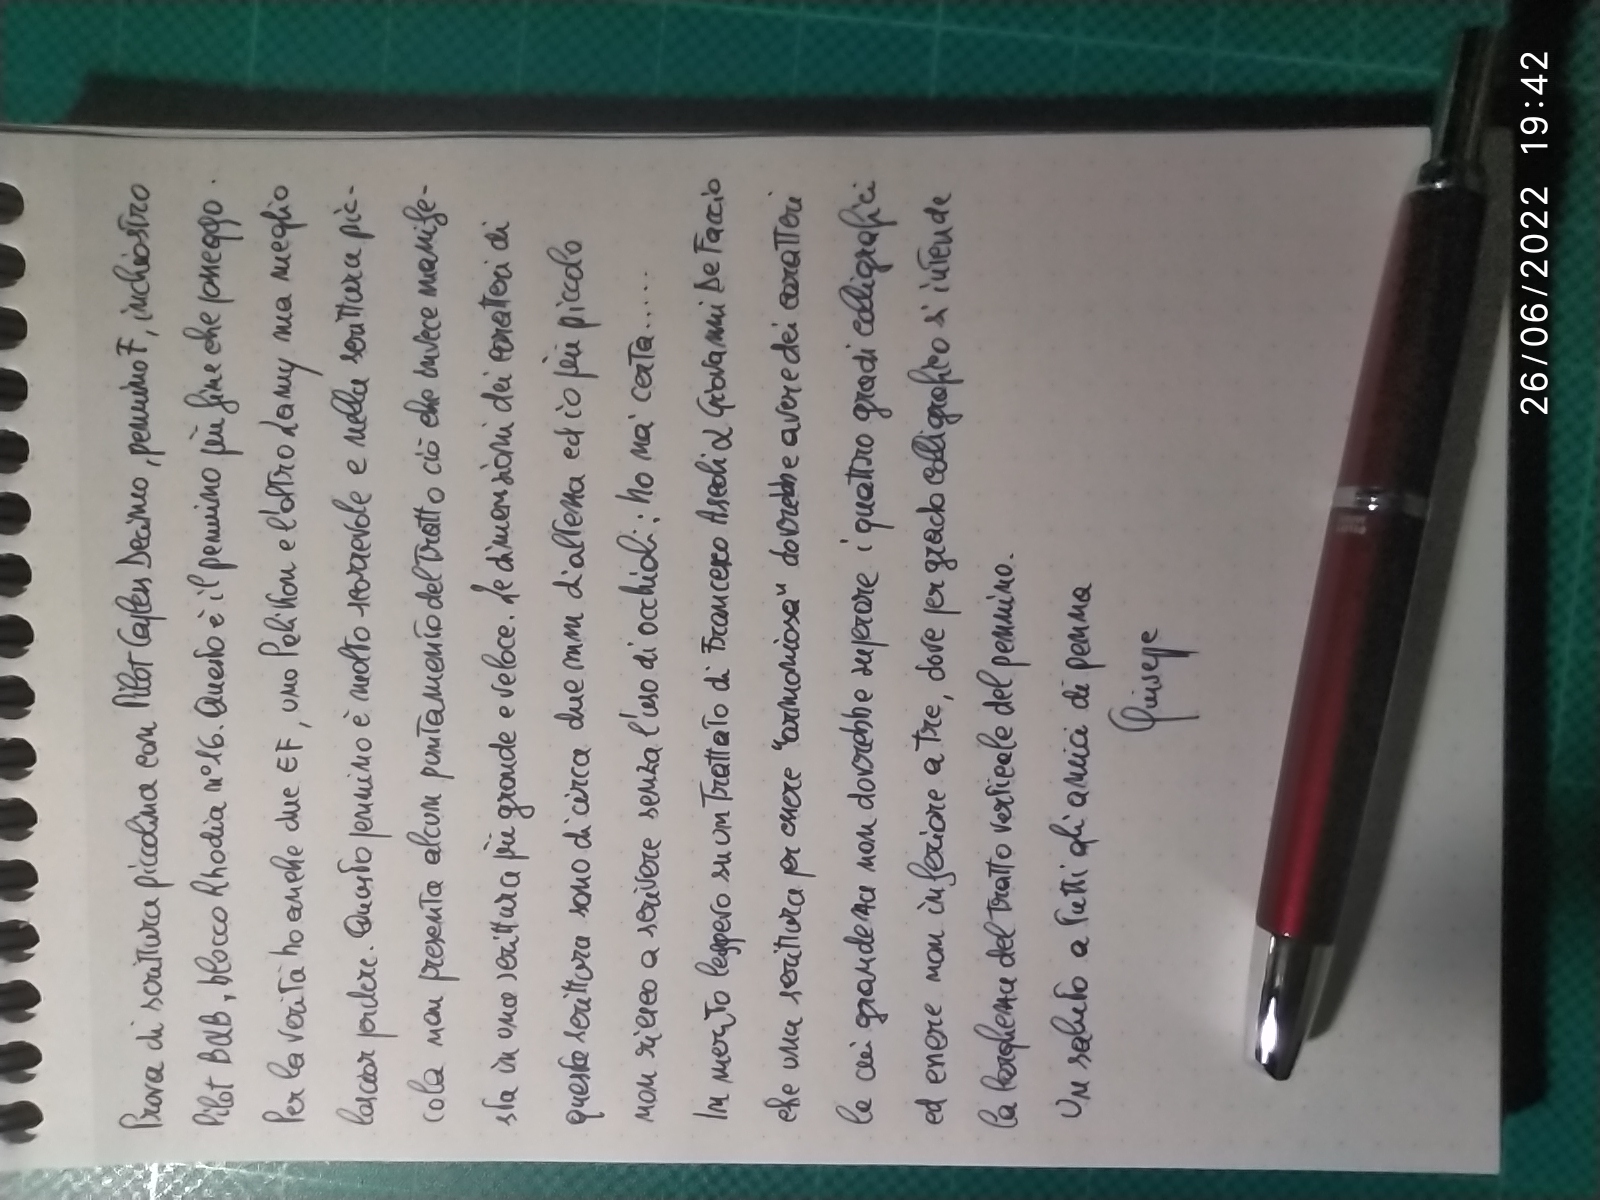 Prova di scrittura piccolina con Pilot Capless Decimo, pennino F, inchiostro
Pilot B&B, blocco Rhodia n°16. Questo è il pennino più fine che posseggo.
Per la verità ho anche due EF, uno Pelikan e l'altro Lamy ma meglio
lasciar perdere. Questo pennino è molto scorrevole e nella scrittura pic-
cola non presenta alcun puntamento del tratto ciò che invece manife-
sta in una scrittura più grande e veloce. Le dimensioni dei caratteri di
questa scrittura sono di circa due mm d'altezza ed io più piccolo
non riesco a scrivere senza l'uso di occhiali: ho na' certa.....
In merito leggevo su un Trattato di Francesco Ascoli & Giovanni De Faccio
che una scrittura per essere "armoniosa" dovrebbe avere dei caratteri
la cui grandezza non dovrebbe superare i quattro gradi calligrafici
ed essere non inferiore a tre, dove per grado calligrafico si intende
la larghezza del tratto verticale del pennino.
Un saluto a tutti gli amici di penna
Giuseppe
26/06/2022 19:42